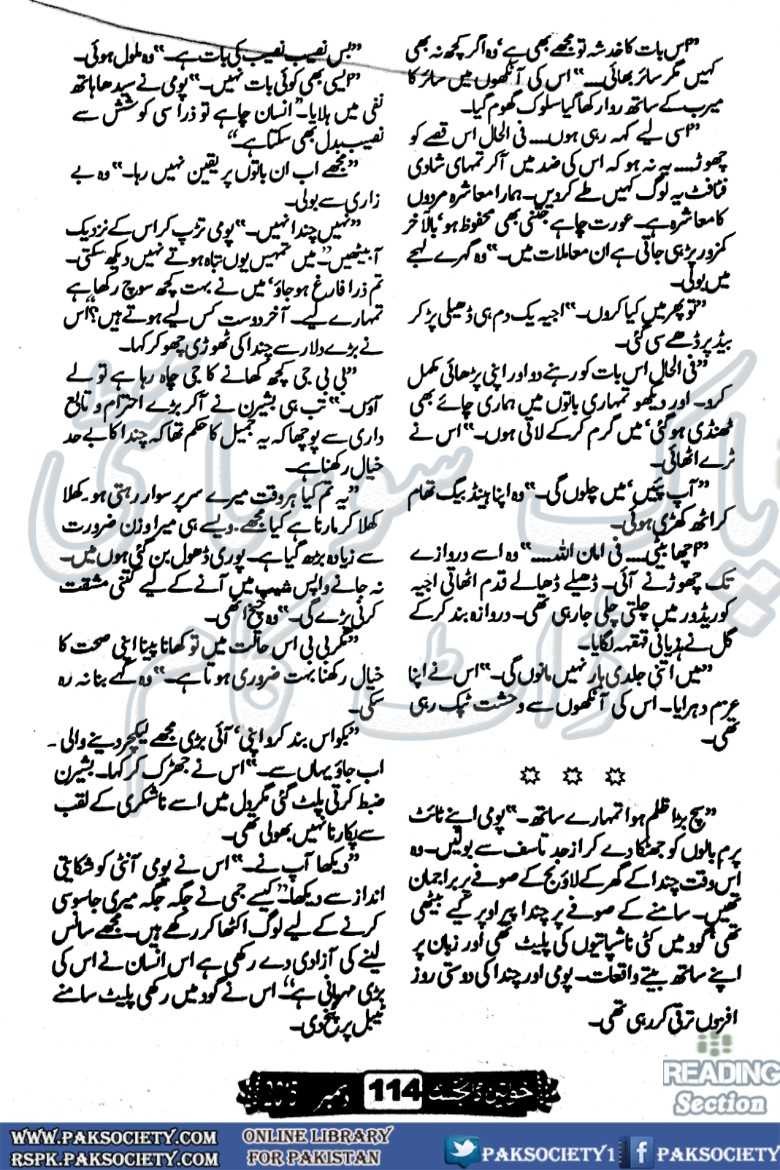 ”اس بات کا خدشہ تو مجھے بھی ہے‘ وہ اگر کچھ نہ بھی
کہیں مگر سائر بھائی....“ اس کی آنکھوں میں سائر کا
میرب کے ساتھ روا رکھا گیا سلوک گھوم گیا۔
”اسی لیے کہہ رہی ہوں.... فی الحال اس قصے کو
چھوڑ.... یہ نہ ہو کہ اس کی ضد میں آ کر تمہاری شادی
فٹافٹ یہ لوگ کہیں طے کر دیں۔ ہمارا معاشرہ مردوں
کا معاشرہ ہے۔ عورت چاہے جتنی بھی محفوظ ہو‘ بالآخر
کمزور پڑ ہی جاتی ہے ان معاملات میں۔“ وہ گہرے لہجے
میں بولی۔
”تو پھر میں کیا کروں۔“ اجیہ یک دم ہی ڈھیلی پڑ کر
بیڈ پر ڈھے سی گئی۔
”فی الحال اس بات کو رہنے دو اور اپنی پڑھائی مکمل
کرو۔ اور دیکھو تمہاری باتوں میں ہماری چائے بھی
ٹھنڈی ہو گئی‘ میں گرم کر کے لاتی ہوں۔“ اس نے
ٹرے اٹھائی۔
”آپ پئیں‘ میں چلوں گی۔“ وہ اپنا ہینڈ بیگ تھام
کر اٹھ کھڑی ہوئی۔
”اچھا بیٹی.... فی امان اللہ....“ وہ اسے دروازے
تک چھوڑنے آئی۔ ڈھیلے ڈھالے قدم اٹھاتی اجیہ
کوریڈور میں چلتی چلی جا رہی تھی۔ دروازہ بند کر کے
گل نے ہذیانی قہقہہ لگایا۔
”میں اتنی جلدی ہار نہیں مانوں گی۔“ اس نے اپنا
عزم دہرایا۔ اس کی آنکھوں سے وحشت ٹپک رہی
تھی۔
”سچ بڑا ظلم ہوا تمہارے ساتھ۔“ پومی اپنے ٹائٹ
پرم بالوں کو جھٹکا دے کر از حد تاسف سے بولیں۔ وہ
اس وقت چندا کے گھر کے لاؤنج کے صوفے پر براجمان
تھیں۔ سامنے کے صوفے پر چندا پیر اوپر کیے بیٹھی
تھی‘ گود میں کٹی ناشپاتیوں کی پلیٹ تھی اور زبان پر
اپنے ساتھ بیتے واقعات۔ پومی اور چندا کی دوستی روز
افزوں ترقی کر رہی تھی۔
”بس نصیب نصیب کی بات ہے۔“ وہ ملول ہوئی۔
”ایسی بھی کوئی بات نہیں۔“ پومی نے سیدھا ہاتھ
نفی میں ہلایا۔ ”انسان چاہے تو ذرا سی کوشش سے
نصیب بدل بھی سکتا ہے۔“
”مجھے اب ان باتوں پر یقین نہیں رہا۔“ وہ بے
زاری سے بولی۔
”نہیں چندا نہیں۔“ پومی تڑپ کر اس کے نزدیک
آ بیٹھیں ”میں تمہیں یوں تباہ ہوتے نہیں دیکھ سکتی۔
تم ذرا فارغ ہو جاؤ‘ میں نے بہت کچھ سوچ رکھا ہے
تمہارے لیے۔ آخر دوست کس لیے ہوتے ہیں؟“ اس
نے بڑے دلار سے چندا کی ٹھوڑی چھو کر کہا۔
”بی بی جی کچھ کھانے کا جی چاہ رہا ہے تو لے
آؤں۔“ تب ہی بشیرن نے آ کر بڑے احترام و تابع
داری سے پوچھا کہ یہ جمیل کا حکم تھا کہ چندا کا بے حد
خیال رکھنا ہے۔
”یہ تم کیا ہر وقت میرے سر پر سوار رہتی ہو۔ کھلا
کھلا کر مارنا ہے کیا مجھے۔ ویسے ہی میرا وزن ضرورت
سے زیادہ بڑھ گیا ہے۔ پوری ڈھول بن گئی ہوں میں۔
نہ جانے واپس شیپ میں آنے کے لیے کتنی مشقت
کرنی پڑے گی۔“ وہ چیخ اٹھی۔
”مگر بی بی اس حالت میں تو کھانا پینا اپنی صحت کا
خیال رکھنا بہت ضروری ہوتا ہے۔“ وہ کہے بنا نہ رہ
سکی۔
”بکواس بند کرو اپنی‘ آئی بڑی مجھے لیکچر دینے والی۔
اب جاؤ یہاں سے۔“ اس نے جھڑک کر کہا۔ بشیرن
ضبط کرتی پلٹ گئی مگر دل میں اسے ناشکری کے لقب
سے پکارنا نہیں بھولی تھی۔
”دیکھا آپ نے۔“ اس نے پومی آنٹی کو شکایتی
انداز سے دیکھا۔ ”کیسے جمی نے جگہ جگہ میری جاسوسی
کرنے کے لیے لوگ اکٹھا کر رکھے ہیں۔ مجھے سانس
لینے کی آزادی دے رکھی ہے اس انسان نے اس کی
بڑی مہربانی ہے۔“ اس نے گود میں رکھی پلیٹ سامنے
ٹیبل پر پٹخ دی۔
خواتین ڈائجسٹ 114 دسمبر
READING
Section
WWW.PAKSOCIETY.COM
RSPK.PAKSOCIETY.COM
ONLINE LIBRARY
FOR PAKISTAN
PAKSOCIETY1
PAKSOCIETY
پاک سوسائٹی
ڈاٹ کام